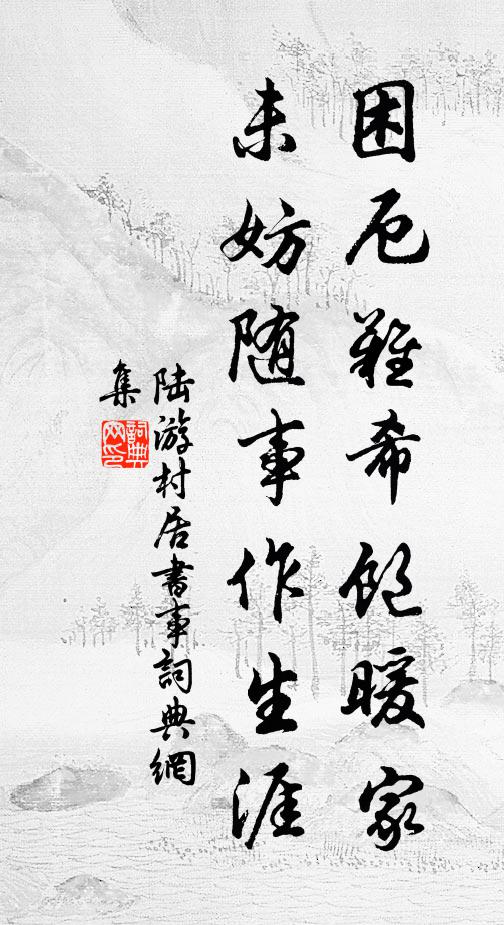 困厄难希饱暖家
未妨随事作生涯
陆游村居书事詞典網
集
詞典
网印